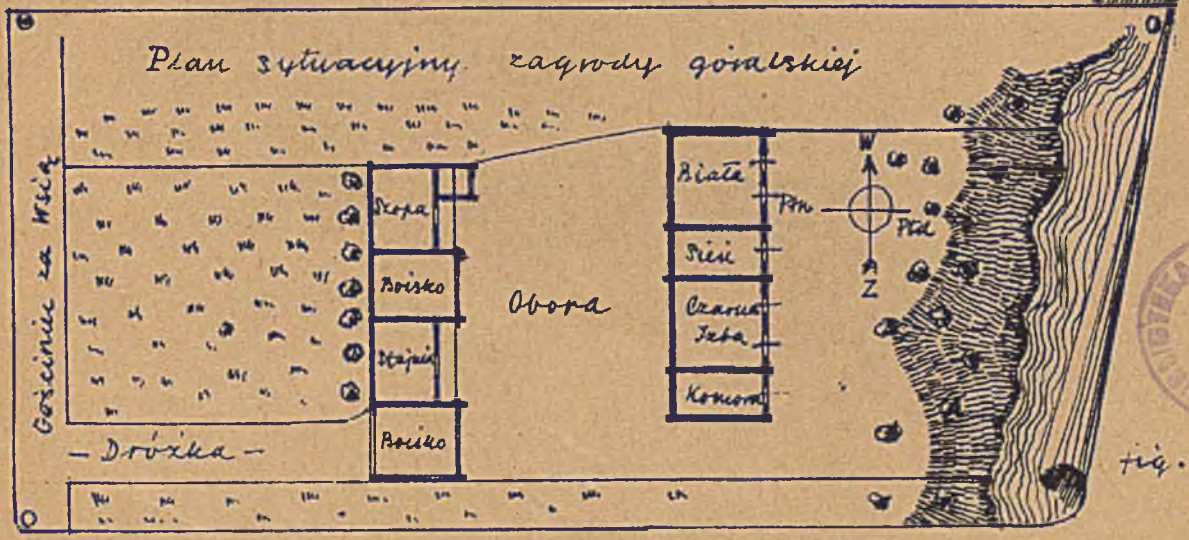 Plan sytuacyjny zagrody góralskiej
Gościniec za wsią
Szopa
Boisko
Stajnia
Boisko
– Dróżka –
Obora
Biała
Sień
Czarna
Izba
Komora
W
Płn
Płd
Z
fig.